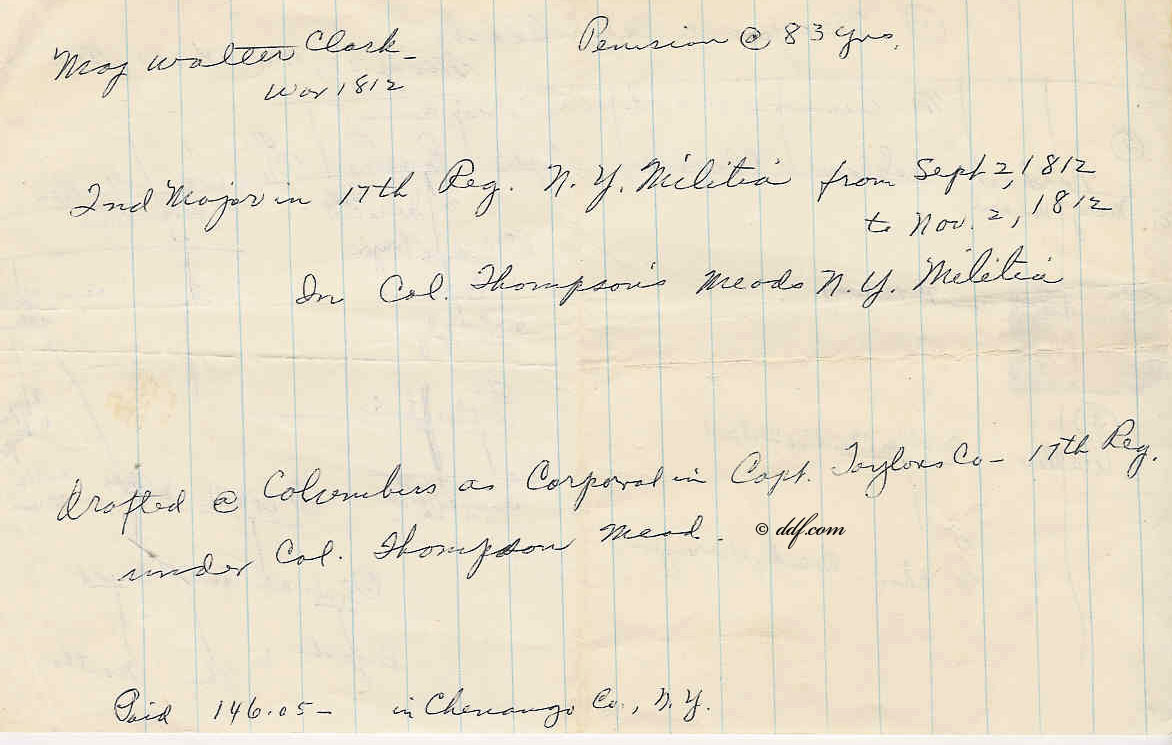 Maj Walter Clark - Pension @ 83 yrs.
War 1812
2nd Major in 17th Reg. N.Y. Militia from Sept 2, 1812
to Nov. 2, 1812
In Col. Thompson's Meads N.Y. Militia
drafted @ Columbus as Corporal in Capt. Taylors Co - 17th Reg.
under Col. Thompson Mead.
© ddf.com
Paid 146.05 - in Chenango Co., N.Y.